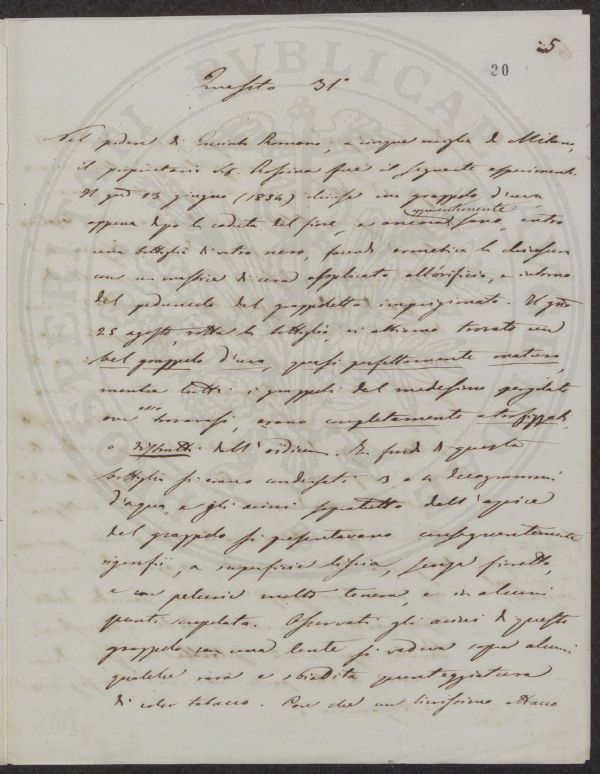 5
20
Quesito 31°
Nel podere di Quinto Romano, a cinque miglia da Milano,
il proprietario Sig. Rossina fece il seguente esperimento.
Il gno 13 giugno (1854) chiuse un grappolo d'uva
appena dopo la caduta del fiore, e ancora apparentemente sano, entro
una bottiglia di vetro nero, facendo ermetica la chiusura
con un mastice di cera applicato all'orifizio, e intorno
del peduncolo del grappoletto imprigionato. Il gno
25 agosto, rotta la bottiglia, vi abbiamo trovato un
bel grappolo d'uva, quasi perfettamente maturo,
mentre tutti i grappoli del medesimo pergolato
ove esso trovavasi, erano completamente atrofizzati,
o distrutti dall'oidium. In fondo di questa
bottiglia si erano condensati 3, o 4 decagrammi
d'acqua, e gli acini soprattutto dell'apice
del grappolo si presentavano conseguentemente
rigonfii, a superficie liscia, senza fioretto,
e con pelurie molto tenera, e in alcuni
punti screpolata. Osservati gli acini di questo
grappolo con una lente si vedeva sopra alcuni
qualche rara e sbiadita punteggiatura
di color tabacco. Pare che un lievissimo attacco